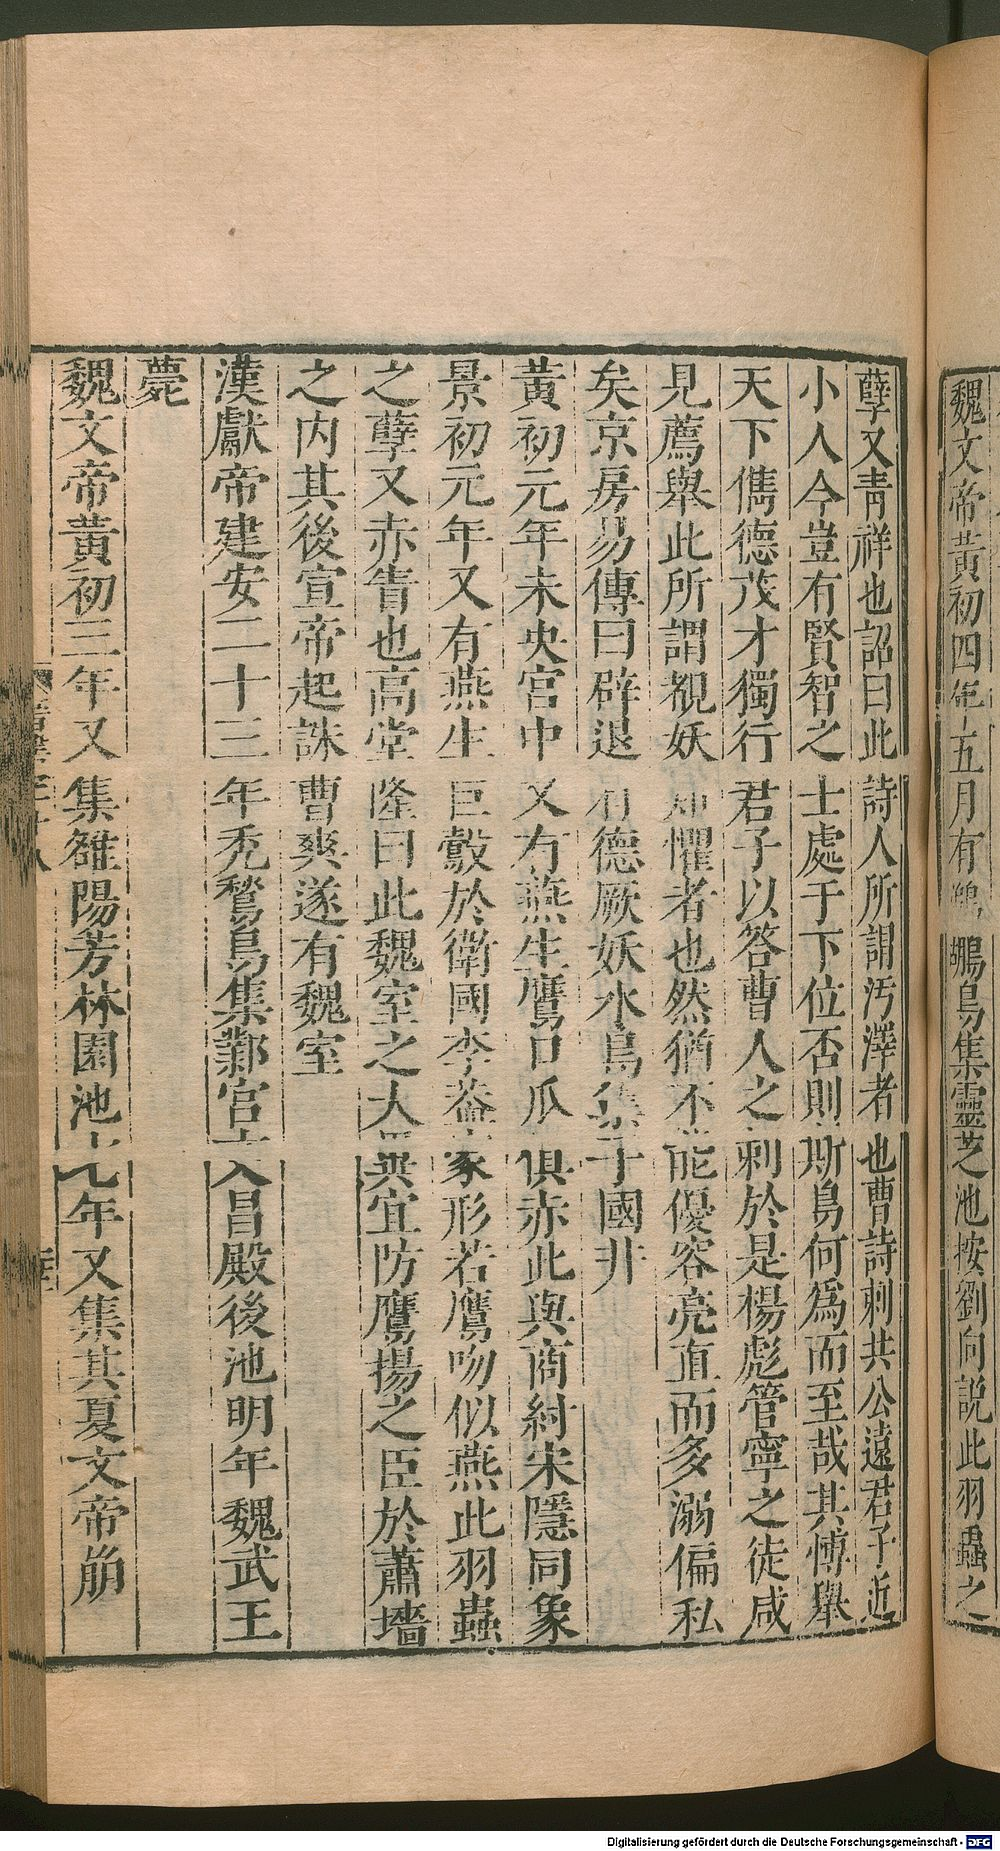 魏文帝黃初四年五月有鵜鶘鳥集靈芝池按劉向說此羽蟲之
孽又青祥也詔曰此詩人所謂汚澤者也曹詩刺共公遠君子近
小人今豈有賢智之士處于下位否則斯鳥何爲而至哉其慱舉
天下儁德茂才獨行君子以答曹人之刺於是楊彪管寧之徒咸
見薦舉此所謂覩妖知懼者也然猶不能優容亮直而多溺偏私
矣京房易傳曰辟退有德厥妖水鳥集于國井
黃初元年未央宮中又有燕生鷹口爪俱赤此與商紂宋隱同象
景初元年又有燕生巨鷇於衛國李蓋家形若鷹吻似燕此羽蟲
之孽又赤眚也高堂隆曰此魏室之大異宜防鷹揚之臣於蕭墻
之內其後宣帝起誅曹爽遂有魏室
漢獻帝建安二十三年禿鶖鳥集鄴宮文昌殿後池明年魏武王
薨
魏文帝黃初三年又集雒陽芳林園池七年又集其夏文帝崩
Digitalisierung gefördert durch die Deutsche Forschungsgemeinschaft - DFG